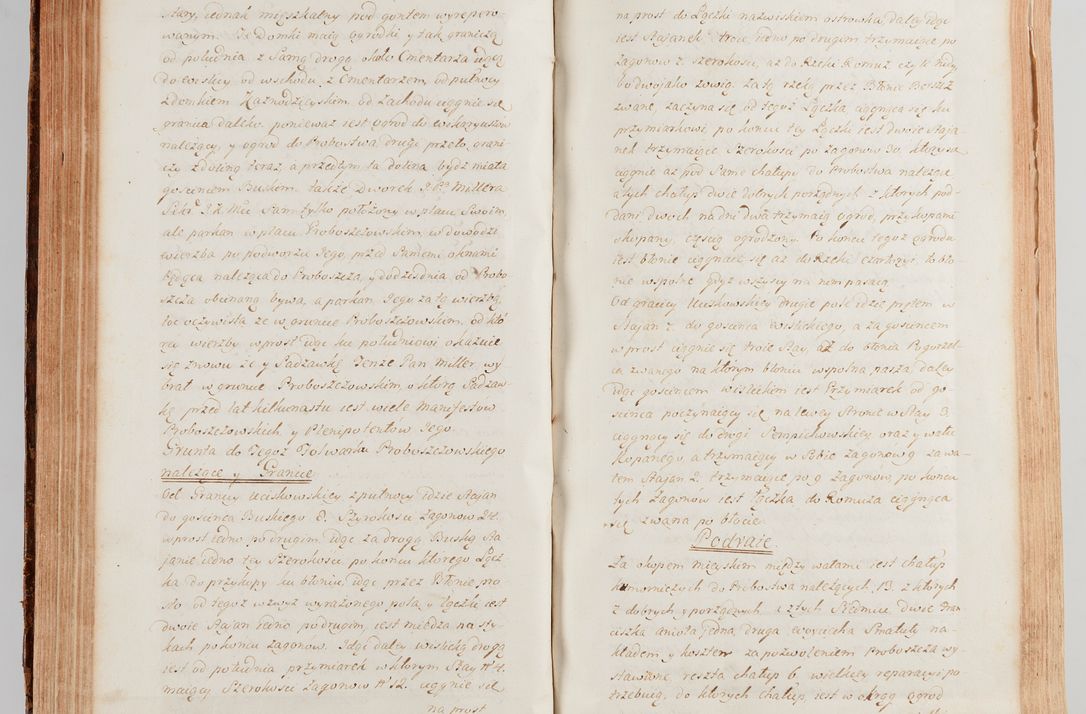 stary, jednak mieszkalny pod gontem wyrepero-
wanym. Te Domki maią Ogrodki y tak graniczą
od południa z Samą drogą około Cmentarza idącą
do  od wschodu z Cmentarzem, od pułnocy
z domkiem Kaznodzieyskim od zachodu ciągnie się
granica daleko. ponieważ iest Ogrod do wikaryuszow
należący, y ogrod do Probostwa drugi przeto grani-
czy z doliną teraz, a przedtym ta dolina bydz miała
goscincem Buskim. także Dworek J. P. Millera
 J. K. Mci Sam tylko położony w placu Swoim,
ale parkan w placu Proboszczowskim, w dowodzie
wierzba po podworzu Jego, przed Samemi oknami
będąca należąca do Proboszcza, y dodzisdnia od Probo
szcza obcinaną bywa, a parkan Jego za tą wierzbą,
toć oczywista że w gruncie Proboszczowskim. od któ
rey wierzby wprost idąc ku południowi okazuie
się znowu że y Sadzawkę Tenże Pan Miller wy
brał w gruncie Proboszczowskim, o którą Sadzaw-
kę przed lat kilkunastu iest wiele Manifestow
Proboszczowskich y Plenipotentów Jego
Grunta do Tegoż Folwarku Proboszczowskiego
należące y Granice
Od Granicy Uciskowskiey z pułnocy idzie Stajan
do goscinca Buskiego 8. Szyrokosci Zagonow 24.
wprost iedno po drugim, idąc za drogą Buską Sta-
janie iedno tey Szerokosci, po koncu którego Łącz-
ka do przykopy ku błoniu, idąc przez Błonie pro-
sto od tegoż wzwyż wyrażonego pola, y łączki iest
dwoie Stajan iedno po drugim, iest miedza na sty-
kach po koncu zagonow. Idąc daley wislicką drogą
iest od południa przymiarek w ktorym Stay Nº 4.
maiący Szerokosci Zagonow Nº 12. ciągnie się
na prost
na prost do Łączki nazwiskiem ostrowka, daley idąc
iest Stajanek troie, iedno po drugim trzymaiące po
Zagonow 7. szerokosci, aż do Rzeki Romuz czyli Nidy
bo dwojako zowią. Za tą rzeką przez Błonie 
zwane, zaczyna się od tegoż Łączka, ciągnąca się ku
przymiarkowi, po koncu tey Łączki iest dwoie Staja-
nek trzymaiące Szerokosci po zagonow 30. które są
ciągnie aż pod Same chałupy do Probostwa należące,
a tych chałup dwie dobrych porządnych z ktorych pod-
dani dwoch na dni dwa trzymaią Ogrod, przykopami
okopany, częscią ogrodzony. Po koncu tegoż ogrodu
iest błonie ciągnące się aż do Rzeki czarkżyi. to bło-
nie wspolne gdyż wszyscy na nim pasaią
Od granicy Uciskowskiey drugie pole idzie prętem w
Stajan 7. do goscinca wislickiego, a za goscincem
wprost ciągnie się troie Stay, aż do błonia Pogorzel
ca zwanego na ktorym błoniu wspolna pasza, daley
idąc goscincem wislickim iest Przymiarek od go-
scinca poczynaiący się na lewey Stronie w Stay 3.
ciągnący się do drogi Pempichowskiey oraz y wału
Kopanego, a trzymaiący w Sobie Zagonow 9 zawa-
tem Stajan 2. trzymaiące po 9 Zagonow, po koncu
tych Zagonow iest Łączka do Romuza ciągnąca
się zwana po błocie
Podraie
Za okopem mieyskim między wałami iest chałup
kumorniczych do Probostwa należących 13. z ktorych
7. dobrych y porządnych, z tych Siedmiu, Dwie Fran-
ciszka anioła, iedna, druga woyciecha Smatuły na-
kładem y kosztem za pozwoleniem Proboszcza wy-
stawione, reszta chałup 6. wielkiey reparacyi po-
trzebuią. do ktorych chałup, iest w okrąg ogrod